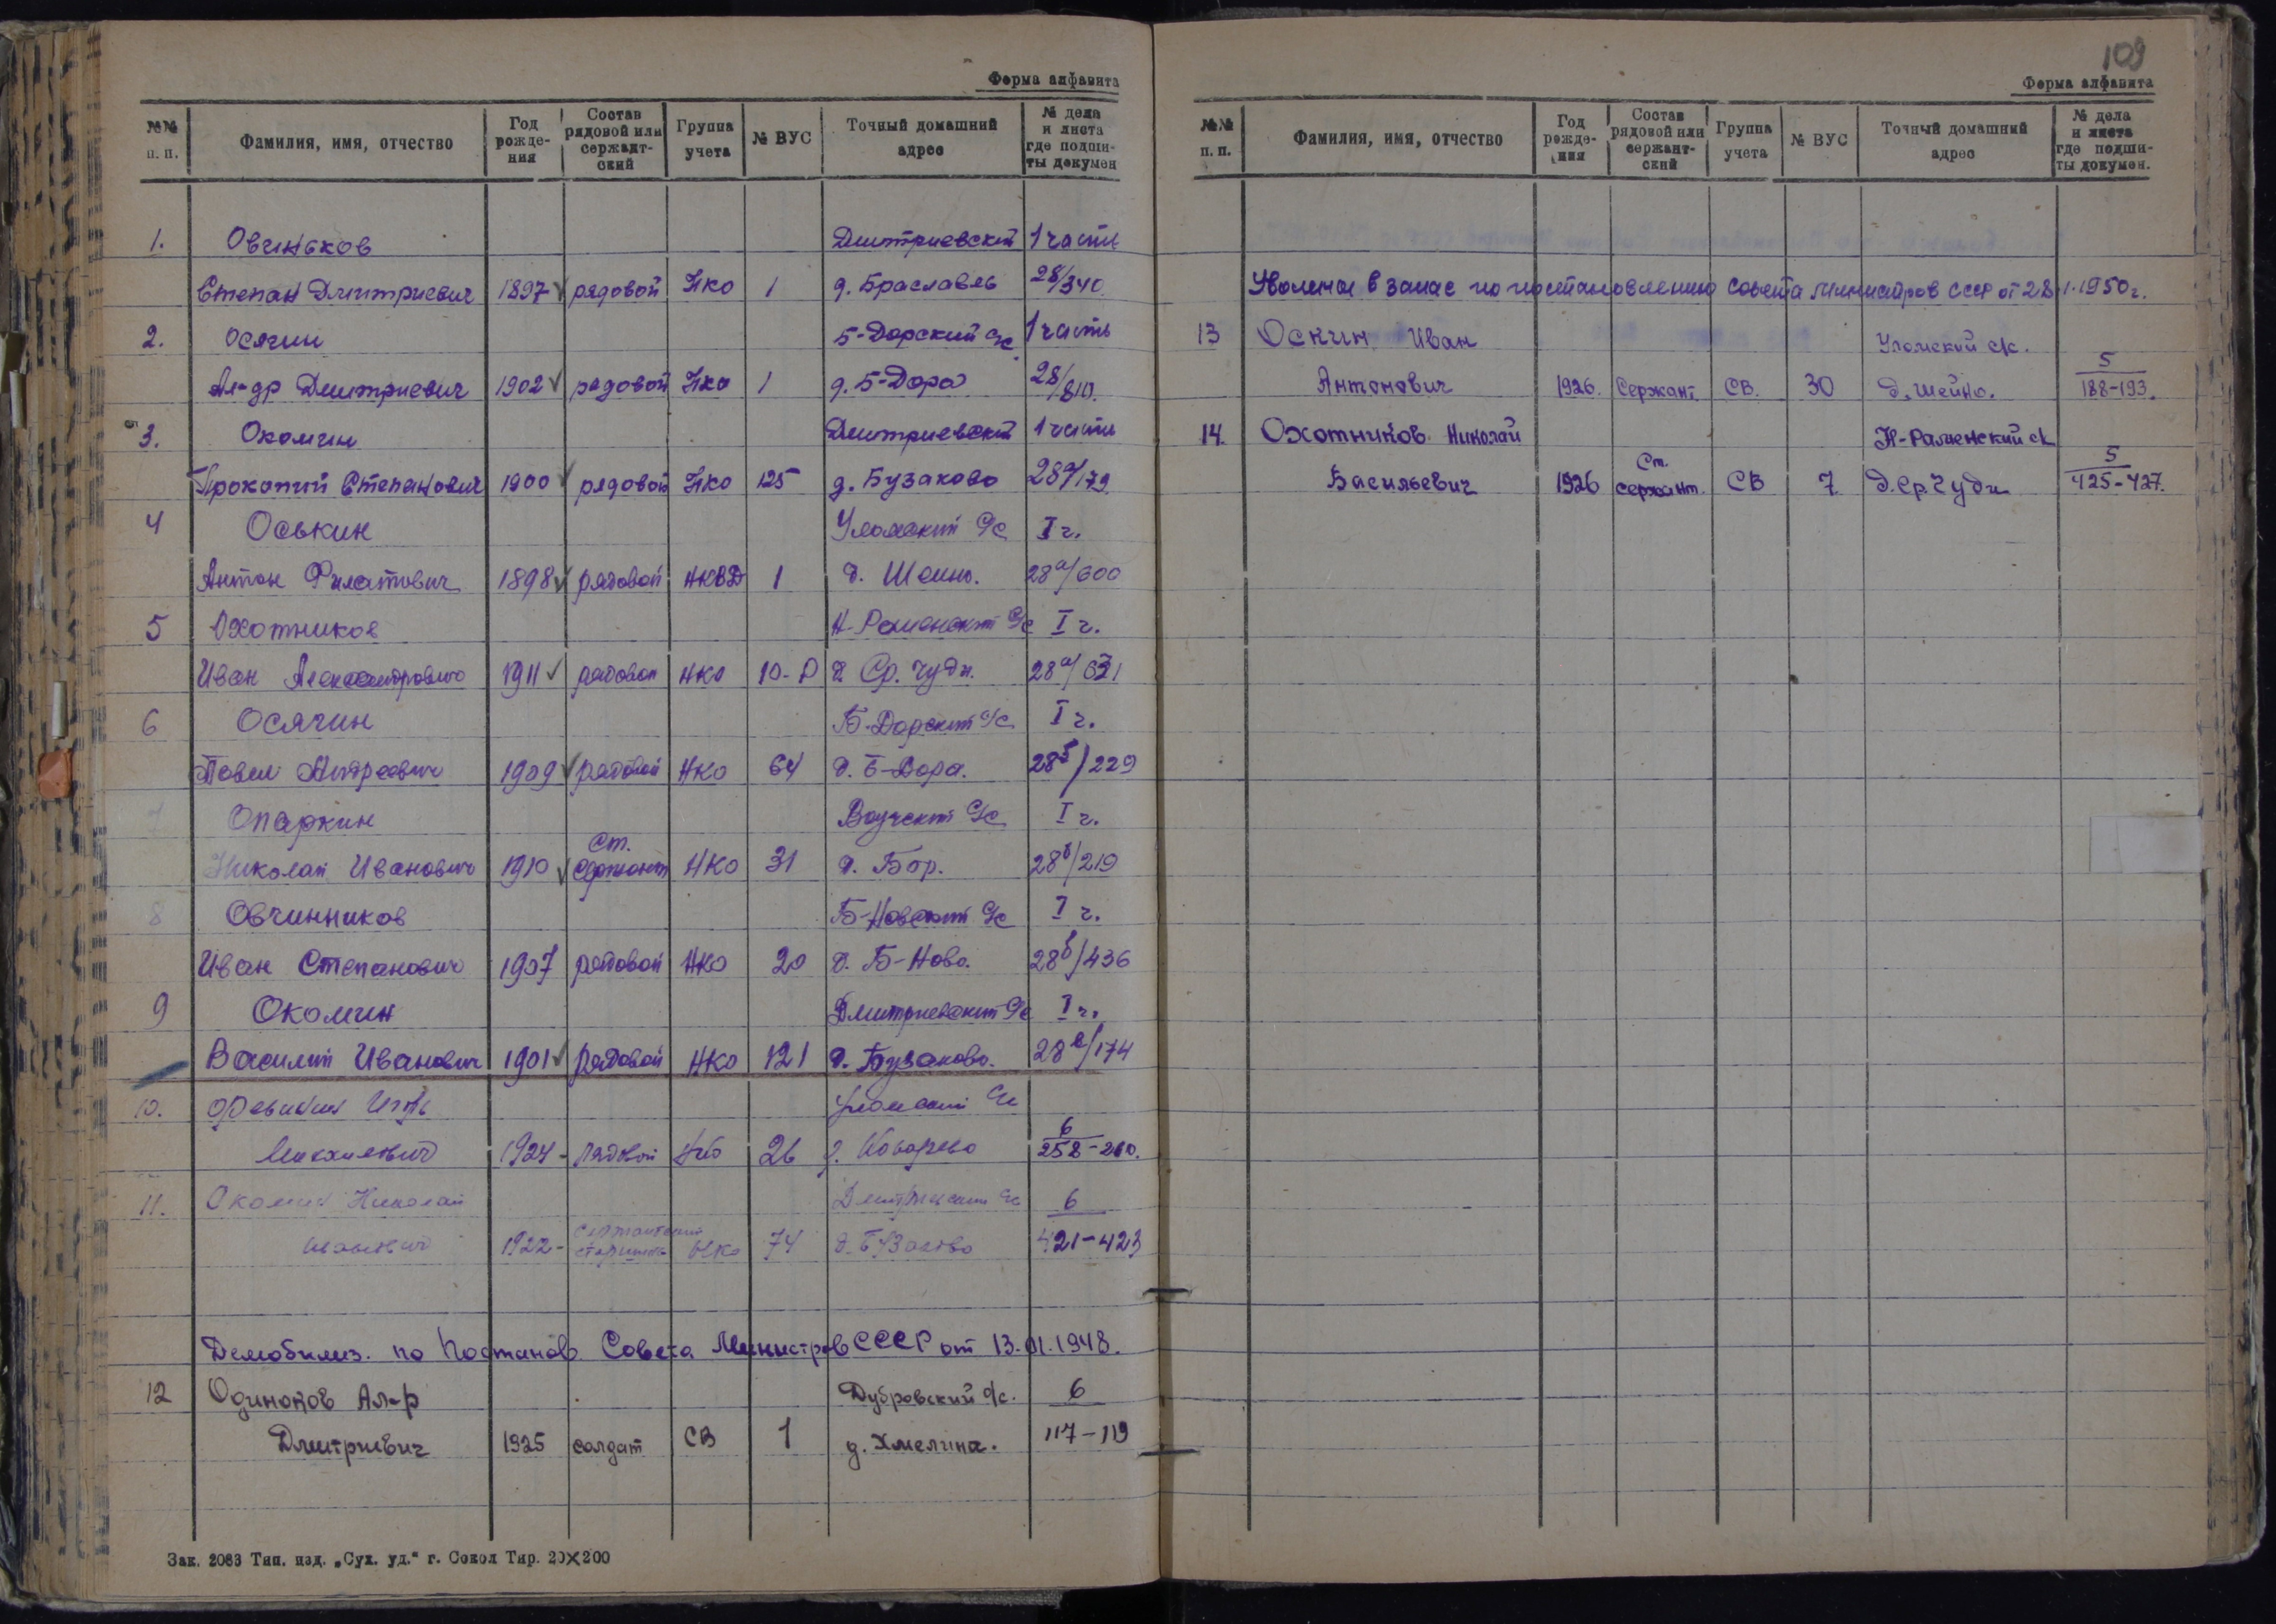 Форма алфавита
№№ п. п. Фамилия, имя, отчество Год рожде-ния Состав рядовой или сержант-ский Группа учета № ВУС Точный домашний адрес № дела и листа где подши-ты докумен
1. Овчиньков Дмитриевский 1 часть
Степан Дмитриевич 1897 рядовой НКО 1 д. Браславль 28/340.
2. Осягин Б-Дорский с/с 1 часть
Ал-др Дмитриевич 1902 рядовой НКО 1 д. Б-Дора 28/810.
3. Окомин Дмитриевский 1 часть
Прокопий Степанович 1900 рядовой НКО 125 д. Бузаково 28а/179.
4 Оськин Уломский с/с I ч.
Антон Филатович 1898 рядовой НКВД 1 д. Шеино. 28а/600
5 Охотников Н-Раменский с/с I ч.
Иван Александрович 1911 рядовой НКО 10-Р д Ср. Чуди. 28а/631
6 Осягин Б-Дорский с/с I ч.
Павел Андреевич 1909 рядовой НКО 64 д. Б-Дора. 28б/229
7 Опаркин Воучский с/с I ч.
Николай Иванович 1910 Ст. сержант НКО 31 д. Бор. 28б/219
8 Овчинников Б-Новский с/с I ч.
Иван Степанович 1907 рядовой НКО 20 д. Б-Ново. 28б/436
9 Окомин Дмитриевский с/с I ч.
Василий Иванович 1901 рядовой НКО 121 д. Бузаково. 28в/174
10. Уломский с/с
Михайлович 1924 - рядовой НКО 26 д. 6
258-260.
11. Окомин Николай Дмитриевский с/с 6
Иванович 1922 - сержантский старшина НКО 74 д. Бузаково 421-423
Демобилиз. по Постанов. Совета Министров СССР от 13.01.1948.
12 Одиноков Ал-р Дубровский с/с. 6
Дмитриевич 1925 солдат СВ 1 д. Хмелина. 117-119
Зак. 2083 Тип. изд. „Сух. уд.“ г. Сокол Тир. 20×200
109
Форма алфавита
№№ п. п. Фамилия, имя, отчество Год рожде-ния Состав рядовой или сержант-ский Группа учета № ВУС Точный домашний адрес № дела и листа где подши-ты докумен.
Уволены в запас по постановлению Совета Министров СССР от 28.1.1950г.
13 Оскин Иван Уломский с/с. 5
Антонович 1926. Сержант СВ. 30 д. Шейно. 188-193.
14. Охотников Николай Н-Раменский с/с 5
Васильевич 1926 Ст. сержант. СВ 7 д. Ср. Чуди 425-427.